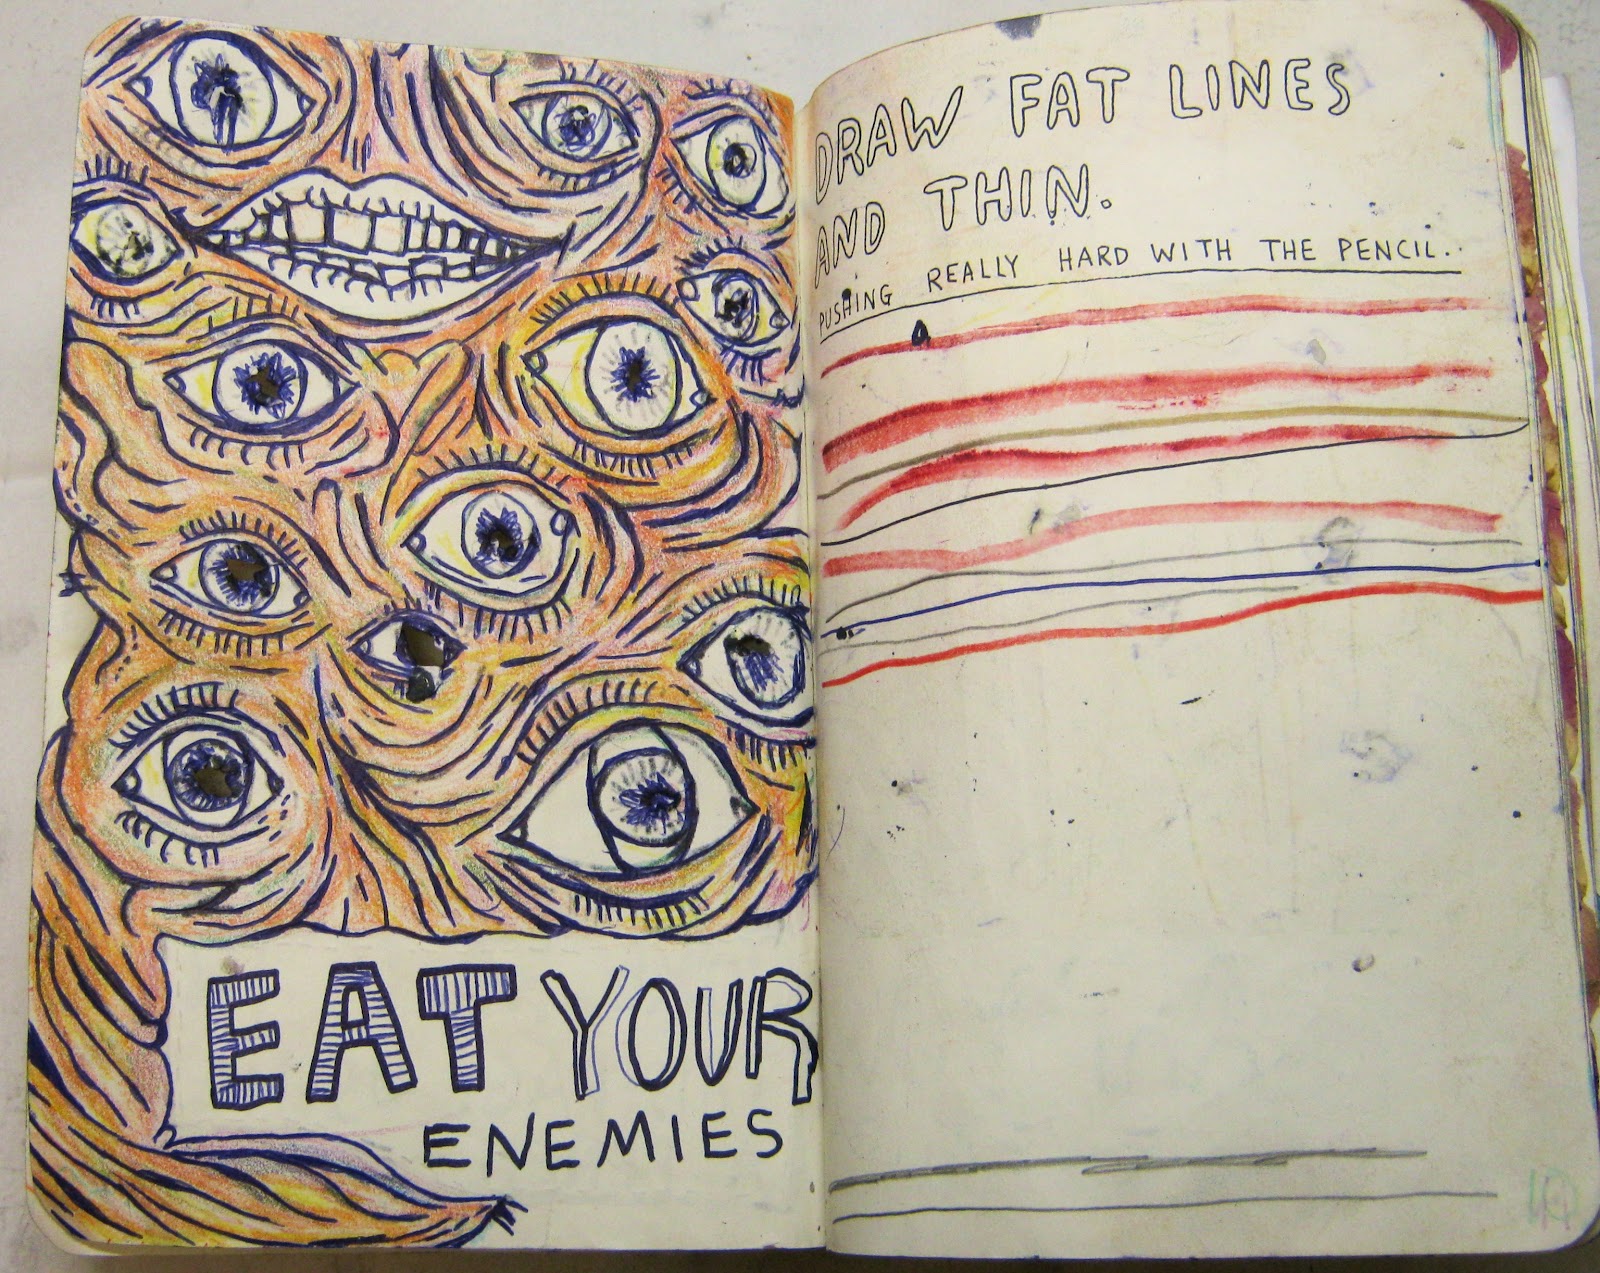 EAT YOUR
ENEMIES
DRAW FAT LINES
AND THIN.
PUSHING REALLY HARD WITH THE PENCIL..